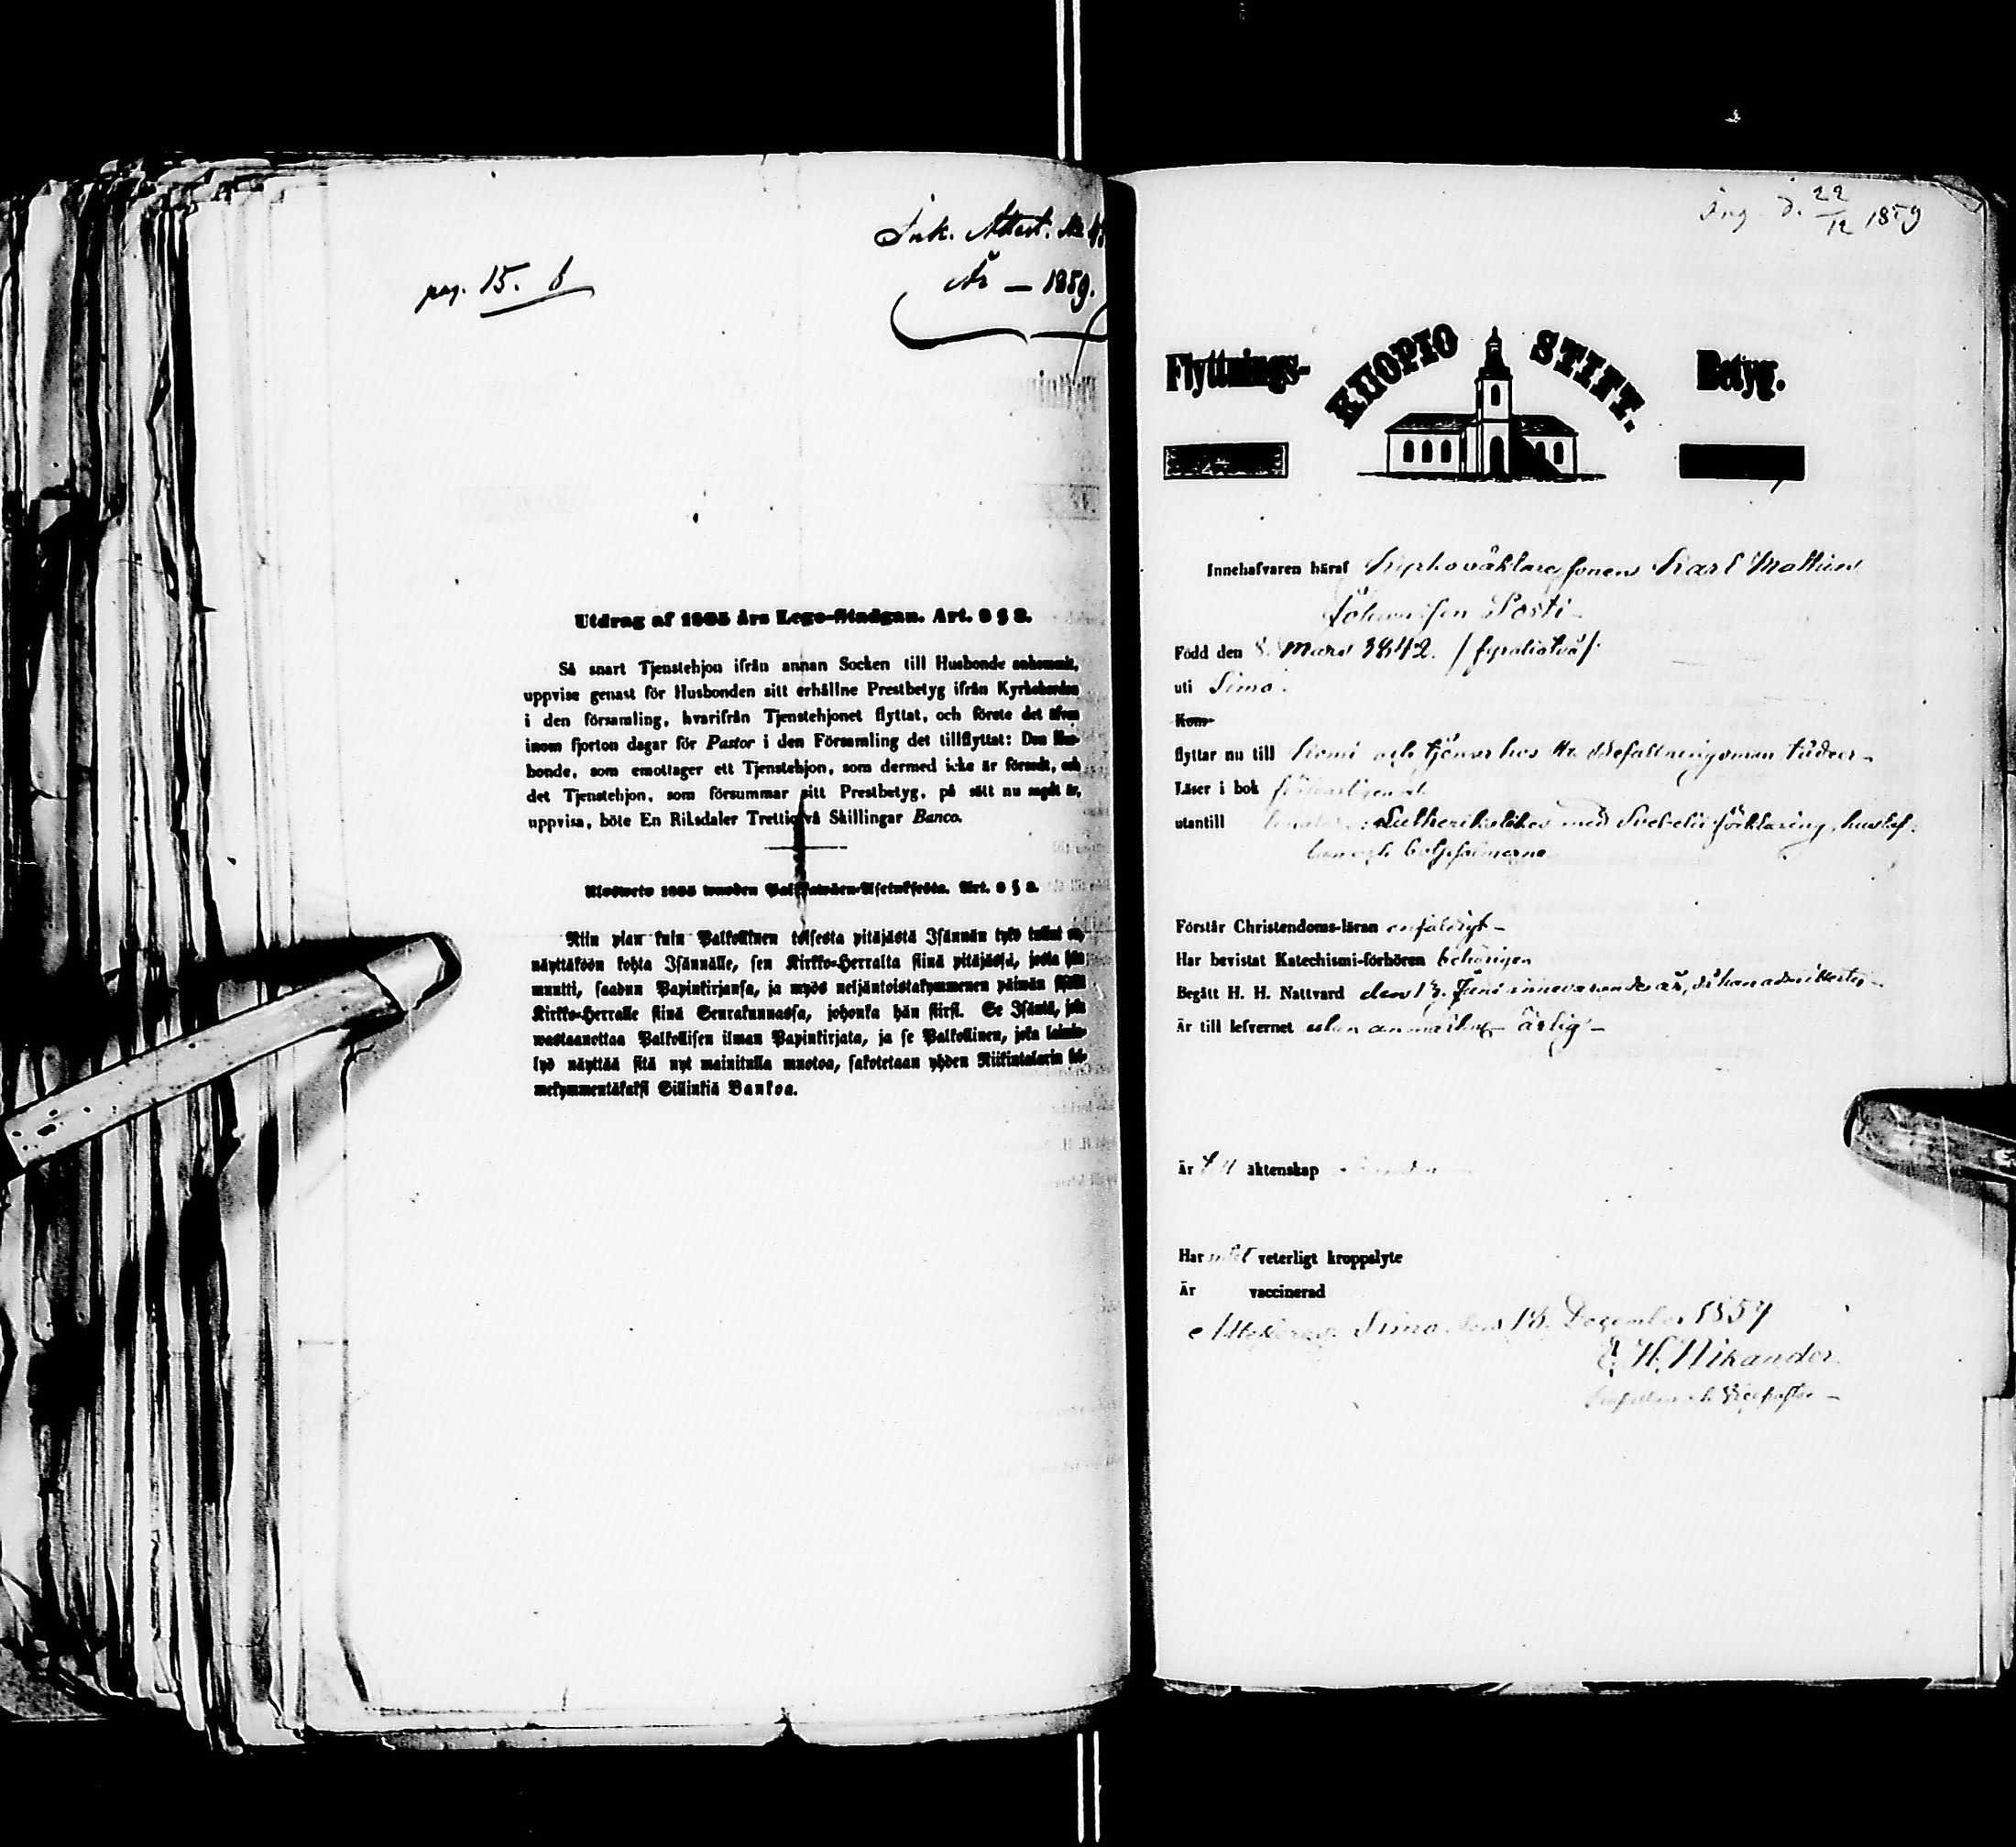 Ink. Attest. No 4
År — 1859.
pag. 15. b
Utdrag af 1805 års Lego-Stadgan. Art. 8 § 2.
Så snart Tjenstehjon ifrån annan Socken till Husbonde ankommit,
uppvise genast för Husbonden sitt erhållne Prestbetyg ifrån Kyrkoherden
i den församling, hvarifrån Tjenstehjonet flyttat, och förete det äfven
inom fjorton dagar för Pastor i den Församling det tillflyttat: Den Hus-
bonde, som emottager ett Tjenstehjon, som dermed icke är försedt, och
det Tjenstehjon, som försummar sitt Prestbetyg, på sätt nu sagdt är,
uppvisa, böte En Riksdaler Trettiotvå Skillingar Banco.
Ulosweto 1805 wuoden Palkkawäen-Asetuksesta. Art. 8 § 2.
Niin pian kuin Palkollinen toisesta pitäjästä Isännän tykö tullut on,
näyttäköön kohta Isännälle, sen Kirkko-Herralta siinä pitäjässä, josta hän
muutti, saadun Papinkirjansa, ja myös neljäntoistakymmenen päiwän sisällä
Kirkko-Herralle siinä Seurakunnassa, johonka hän siirsi. Se Isäntä, joka
wastaanottaa Palkollisen ilman Papinkirjata, ja se Palkollinen, joka laimin-
lyö näyttää sitä nyt mainitulla muotoa, sakotetaan yhden Riikintalarin kol-
mekymmentäkaksi Sillinkiä Bankoa.
Ing. d. 22/12 1859
Flyttnings- KUOPIO STIFT. Betyg.
Innehafvaren häraf Kyrkoväktaresonen Karl Mathias
Johansson Posti
Född den 8 Mars 1842. /fyratiotvå/
uti Simo.
Kom-
flyttar nu till Kemi och tjenar hos Hr Befallningsman
Läser i bok försvarligen
utantill Lutheri med Svebelii förklaring, hustaf.
och botpsalmerne
Förstår Christendoms-läran enfaldigt —
Har bevistat Katechismi-förhören behörigen
Begått H. H. Nattvard den 13. Juni innevarande år, då han admitterades —
Är till lefvernet utan anmärkng ärlig —
Är till äktenskap
Har intet veterligt kroppslyte
Är vaccinerad
Attesterar Simo den 18. December 1859
E. H. Nikander.